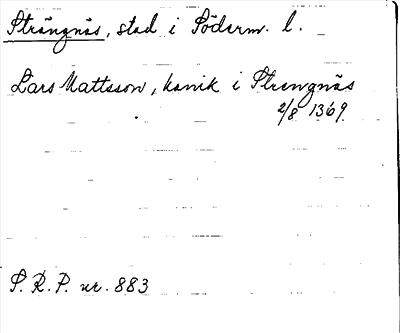 Strängnäs, stad i Söderm. l.
Lars Mattsson, kanik i Strengnäs
2/8 1369.
S. R. P. nr. 883